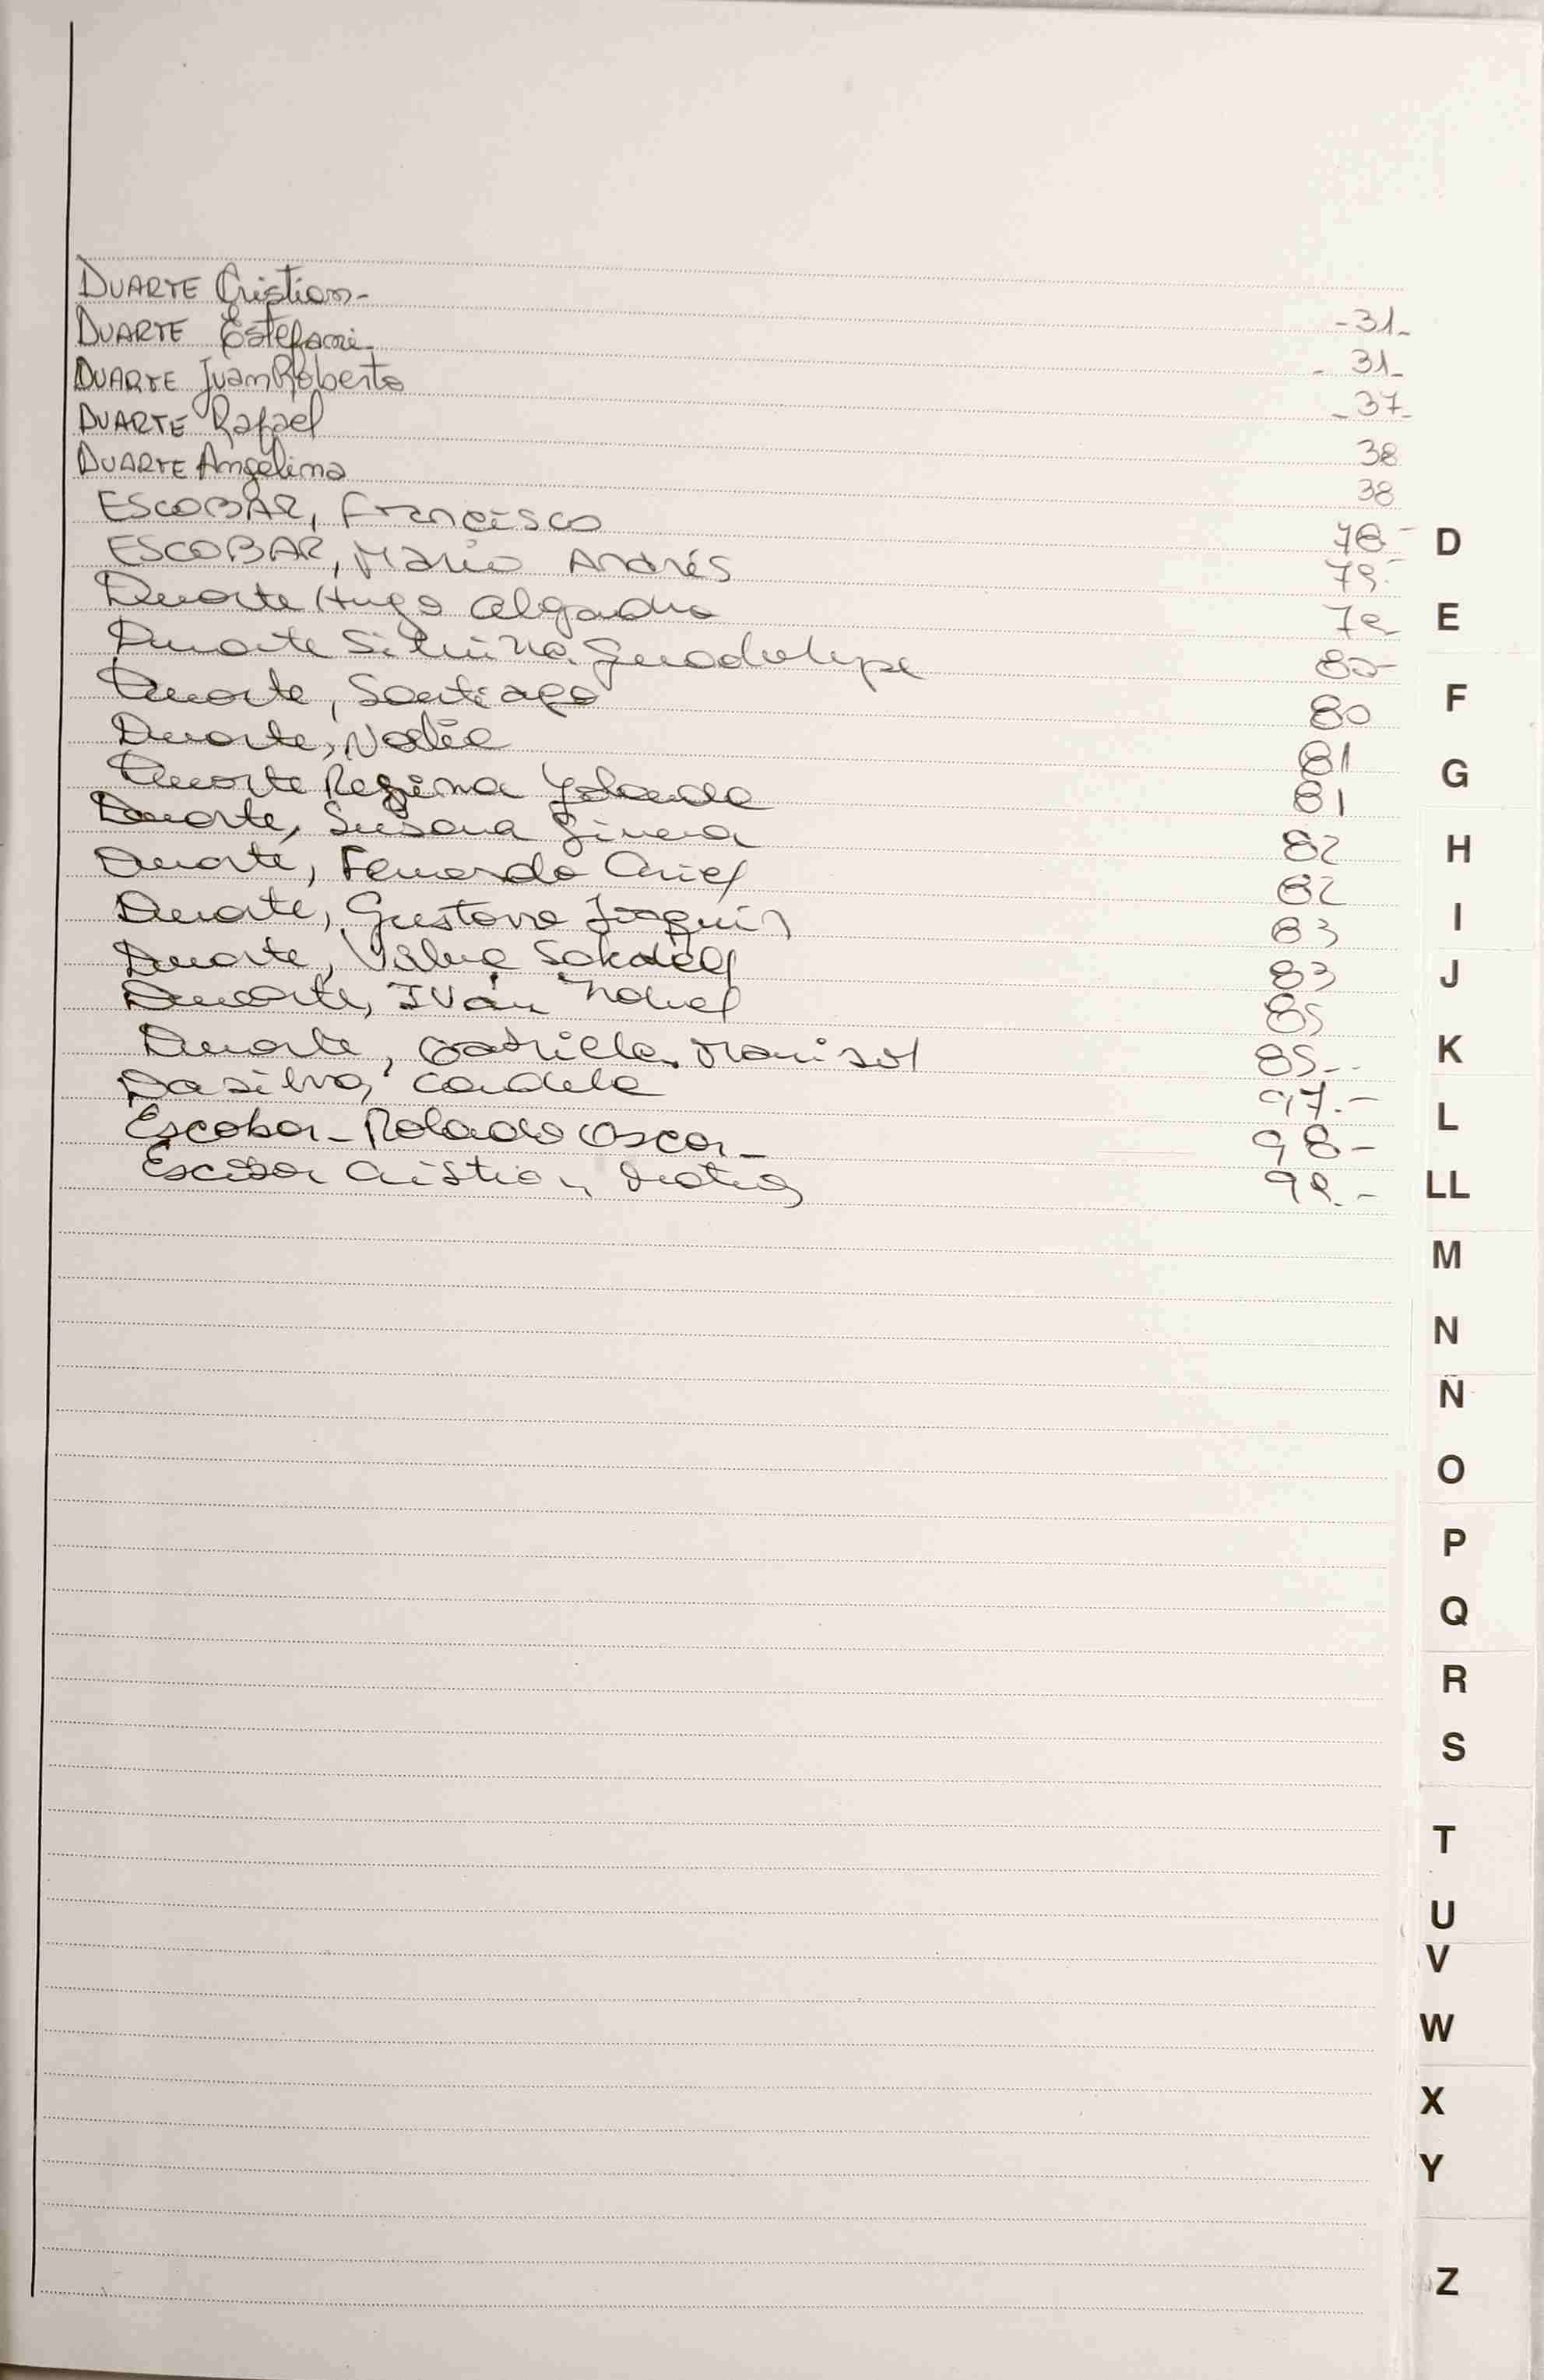 DUARTE Cristian- -31-
DUARTE Estefani- - 31-
DUARTE Juan Roberto -37-
DUARTE Rafael 38
DUARTE Angelina 38
ESCOBAR, Francisco 78-
ESCOBAR, Mario Andrés 79-
Duarte Hugo Alejandro 79
Duarte Silvina Guadalupe 80-
Duarte, Santiago 80
Duarte, Noelia 81
Duarte Regina Yolanda 81
Duarte, Susana Gimena 82
Duarte, Fernando Ariel 82
Duarte, Gustavo Joaquín 83
Duarte, Vilma 83
Duarte, Iván 85
Duarte, Gabriela Marisol 85--
Dasilva, Candela 97.-
Escobar - Rolando Oscar - 98-
Escobar Cristian Matias 98.-
D
E
F
G
H
I
J
K
L
LL
M
N
Ñ
O
P
Q
R
S
T
U
V
W
X
Y
Z